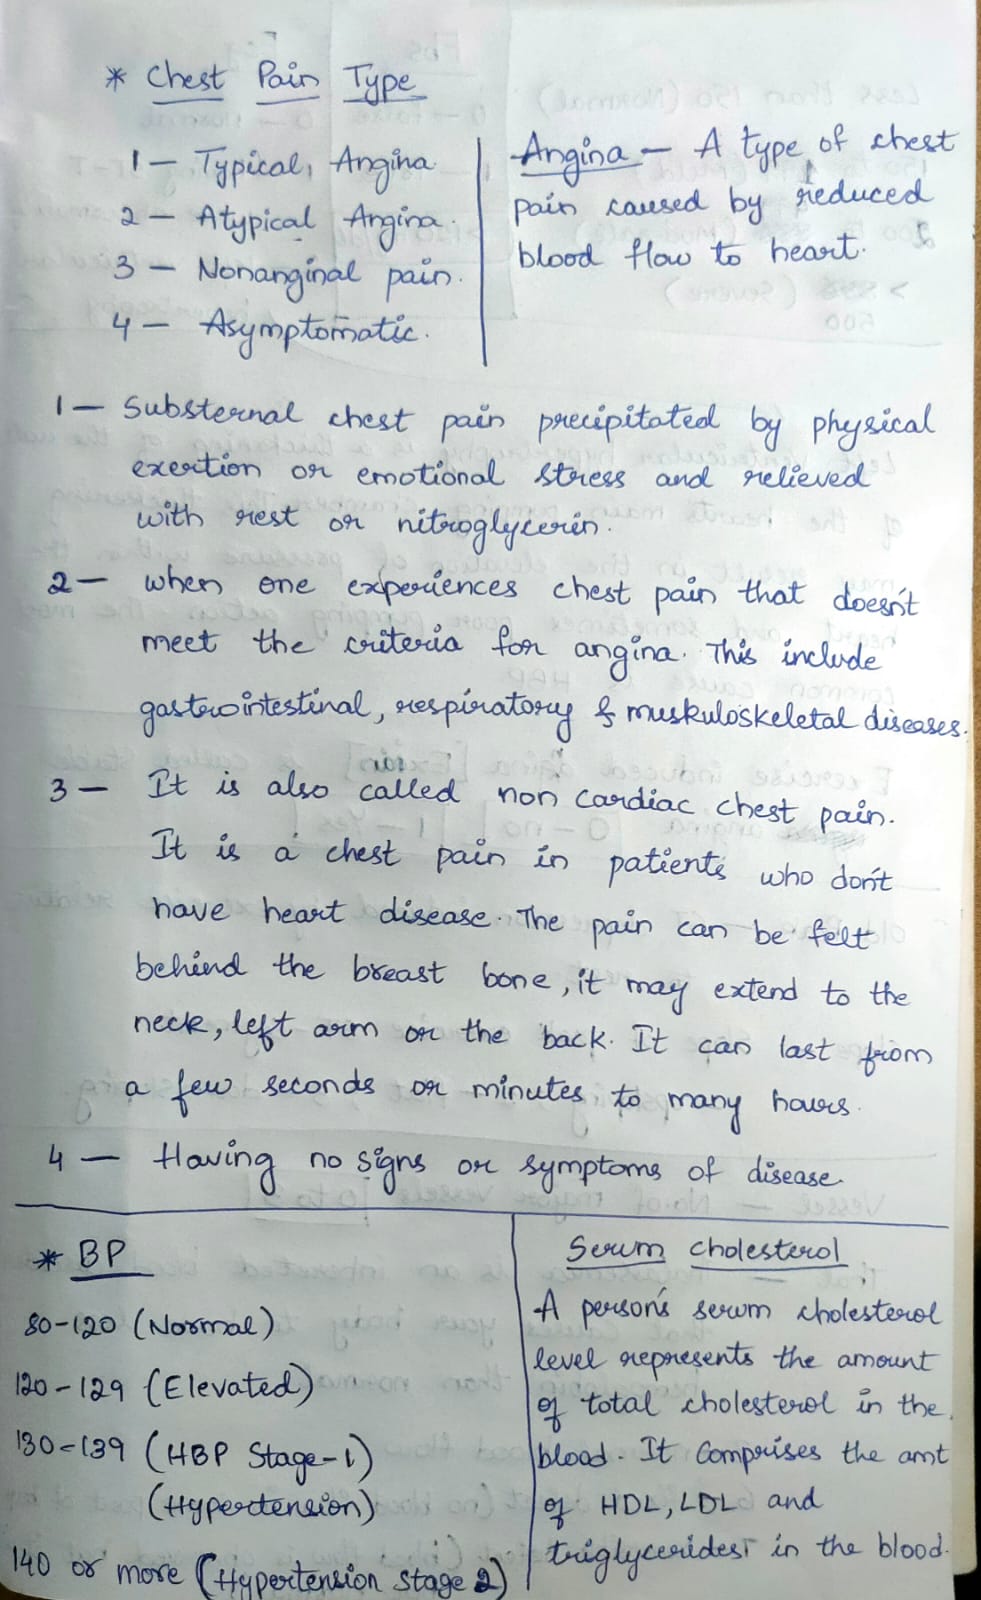 * Chest Pain Type
1 — Typical Angina
2 — Atypical Angina.
3 — Nonanginal pain.
4 — Asymptomatic.
Angina — A type of chest
pain caused by reduced
blood flow to heart.
1 — Substernal chest pain precipitated by physical
exertion or emotional stress and relieved
with rest or nitroglycerin.
2 — when one experiences chest pain that doesn't
meet the criteria for angina. This include
gastrointestinal, respiratory & muskuloskeletal diseases.
3 — It is also called non cardiac chest pain.
It is a chest pain in patients who don't
have heart disease. The pain can be felt
behind the breast bone, it may extend to the
neck, left arm or the back. It can last from
a few seconds or minutes to many hours.
4 — Having no signs or symptoms of disease.
* BP
80-120 (Normal)
120-129 (Elevated)
130-139 (HBP Stage-1)
(Hypertension)
140 or more (Hypertension Stage 2)
Serum Cholesterol
A person's serum cholesterol
level represents the amount
of total cholesterol in the
blood. It Comprises the amt
of HDL, LDL and
triglycerides in the blood.